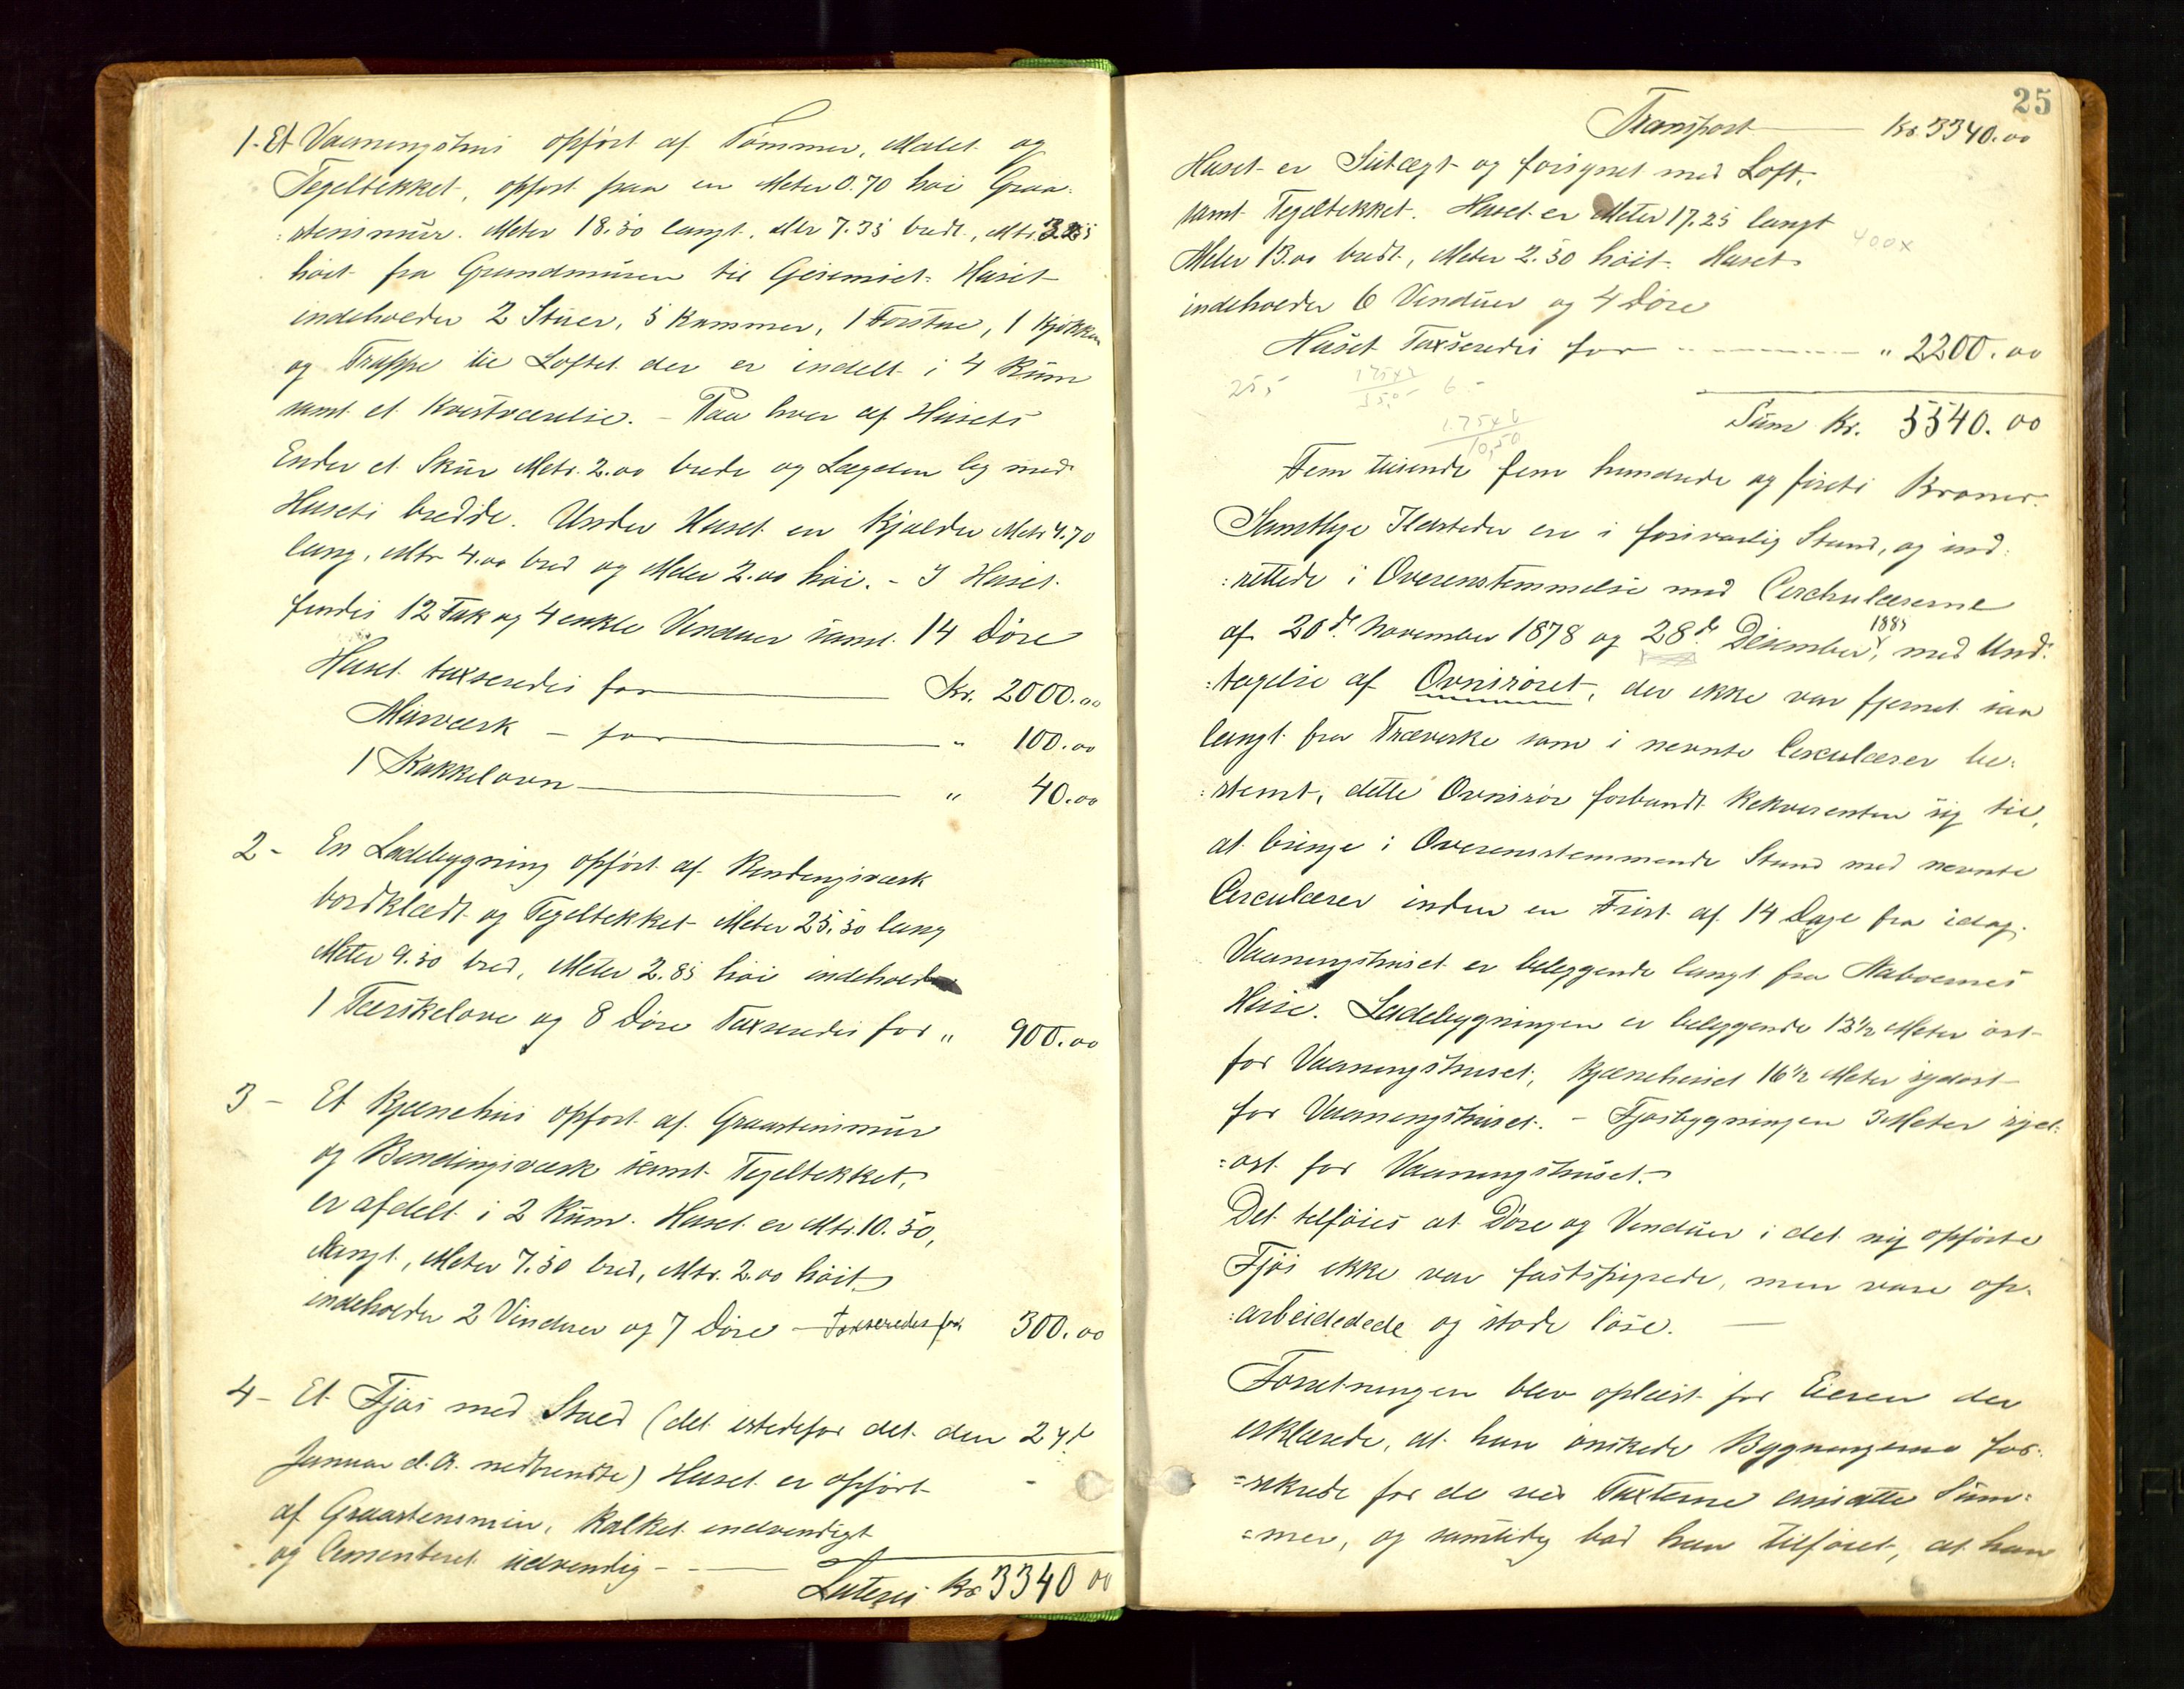 1- Et Vaaningshus opført af Tømmer, Malet og
Tegeltekket, opført paa en Meter 0.70 høi Graa=
=stensmur. Meter 18.50 langt, Mtr 7.35 bredt, Mtr.
høit fra Grundmuren til Gesemset. Huset
indeholder 2 Stuer, 5 Kammer, 1 Forstue, 1 Kjøkken
og Trappe til Loftet der er indelt i 4 Rum
samt et Kvistværelse. - Paa hver af Husets
Ender et Skur Metr. 2.00 brede og Længden lig med
Husets bredde. Under Huset en Kjælder Metr 4.70
lang, Mtr 4.00 bred og Meter 2.00 høi. - I Huset
findes 12 Fak og 4 enkle Vinduer samt 14 Døre
Huset taxseredes for Kr. 2000.00
Murværk - for " 100.00
1 Kakkelovn " 40.00
2- En Ladebygning opført af Bindingsværk
bordklædt og Tegeltekket Meter 25.50 lang
Meter 9.50 bred, Meter 2.85 høi indeholder
1 Tærskelove og 8 Døre Taxseredes for " 900.00
3- Et Kjørnehus opført af Graastensmur
og Bindingsværk samt Tegeltekket,
er afdelt i 2 Rum. Huset er Mtr. 10.50,
langt, Meter 7.50 bred, Mtr. 2.00 høit
indeholder 2 Vinduer og 7 Døre - Taxseredes for 300.00
4- Et Fjøs med Stald (det istedefor det den 24de
Januar d.A. nedbrendte) Huset er opført
af Graastensmur, Kalket indvendigt
og Cementeret udvendig -
Lateris Kr 3340 00
25
Transport Kr. 3340.00
Huset er Sutagt og forsynet med Loft,
samt Tegeltekket. Huset er Meter 17.25 langt
400x
Meter 13.00 bredt, Meter 2.50 høit. Huset
indeholder 6 Vinduer og 4 Døre
Huset Taxseredes for " 2200.00
1.75x6
10,50
Sum Kr. 5540.00
Fem tusende fem hundrede og firti Kroner.
Samtlige Ildsteder ere i forsvarlig Stand, og ind=
=rettede i Overenstemmelse med Circhulærerne
af 20de November 1878 og 28de Desember 1885, med Und=
=tagelse af Ovnsrøret, der ikke var fjernet saa
langt fra Træverke som i nevnte Cirkulærer be=
=stemt, dette Ovnsrør forbandt Rekvirenten sig til,
at bringe i Overensstemmende Stand med nevnte
Circulærer inden en Frist af 14 Dage fra idag.
Vaaningshuset er beliggende langt fra Naboernes
Huse. Ladebygningen er beliggende 12½ Meter øst
for Vaaningshuset, Kjørnehuset 16½ Meter sydøst
for Vaaningshuset. - Fjøsbygningen 3 Meter syd=
=øst for Vaaningshuset.
Det tilføies at Døre og Vinduer i det ny opførte
Fjøs ikke var fastspigrede, men vare op=
=arbeidedede og stode løse.
Forretningen blev oplæst for Eieren der
erklærede, at han ønskede Bygningerne for=
=sikrede for de ved Taxterne ansatte Sum=
=mer, og samtidig bad han tilføiet, at han